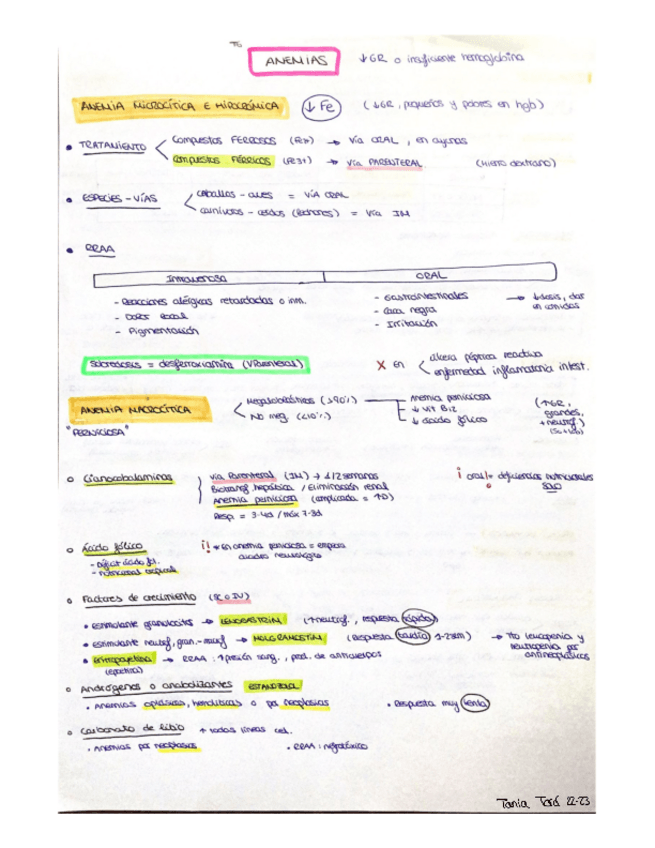 T6
ANEMIAS ↓GR o insuficiente hemoglobina
ANEMIA MICROCÍTICA E HIPOCRÓMICA ↓Fe (↓GR, pequeños y pobres en hgb)
• TRATAMIENTO
Compuestos FERROSOS (Fe2+) → Vía ORAL, en ayunas
Compuestos FÉRRICOS (Fe3+) → Vía PARENTERAL (Hierro dextrano)
• ESPECIES-VÍAS
Caballos - aves = VÍA ORAL
Carnívoros - cerdos (lechones) = Vía IM
• RRAA
INTRAVENOSA ORAL
- Reacciones alérgicas retardadas o inm.
- Dolor local
- Pigmentación
- Gastrointestinales → ↓dosis, dar en comidas
- Caca negra
- Irritación
Sobredosis = desferroxamina (V.Parenteral)
X en
úlcera péptica reactiva
enfermedad inflamatoria intest.
ANEMIA MACROCÍTICA
"PERNICIOSA"
Megaloblásticas (>90%)
No meg. (<10%)
Anemia perniciosa
↓ vit B12
↓ ácido fólico
(↑GR, grandes, +neutrof.)
o Cianocobalaminas
Vía Parenteral (IM) → 1/2 semanas
Biotransf hepática / Eliminación renal
Anemia perniciosa (complicada = ↑D)
Resp. = 3-4d / máx 7-8d
! oral = deficiencias nutricionales solo
o Ácido fólico
- Déficit ácido fól.
- nutricional
¡! * En anemia perniciosa = empeora cuadro neurológico
o Factores de crecimiento (SC o IV)
• estimulante granulocitos → LENOGRASTIM (↑neutrof., respuesta rápida)
• estimulante neutrof, gran.-macrof → MOLGRAMOSTIM (Respuesta tardía 1-2sem) → Tto leucopenia y neutropenia por antineoplásicos
• Eritropoyetina → RRAA: ↑presión sang., prod. de anticuerpos
(epoetina)
o Andrógenos o anabolizantes ESTANOZOLOL
• Anemias aplásicas, hemolíticas o por neoplasias • Respuesta muy lenta
o Carbonato de litio + todas líneas cel.
• Anemias por neoplasias • RRAA: nefrotóxico
Tania Toró 22-23